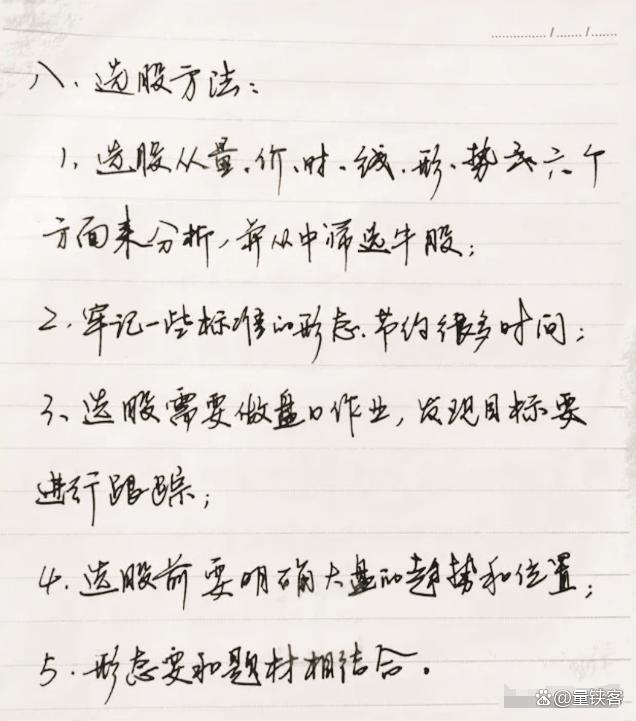 八、选股方法:
1、选股从量、价、时、线、形、势这六个
方面来分析,并从中筛选牛股;
2、牢记一些标准的形态、节约很多时间;
3、选股需要做盘口作业,发现目标要
进行跟踪;
4、选股前要明确大盘的趋势和位置;
5、形态要和题材相结合。
量铁客